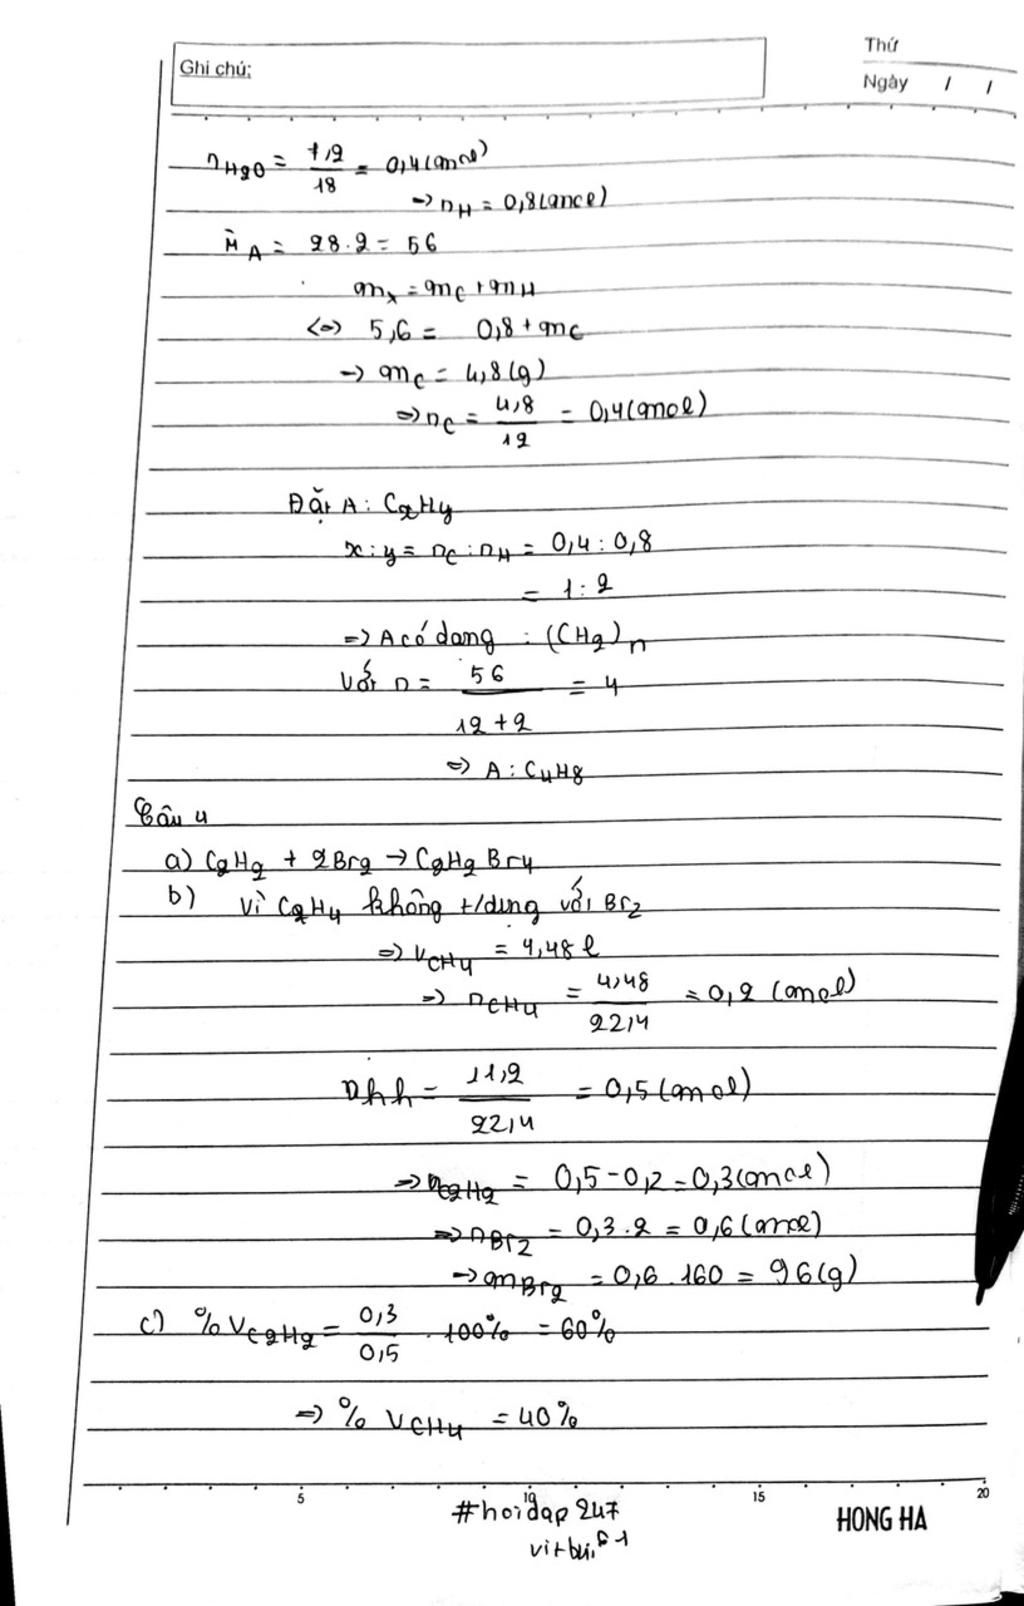 Thứ
Ghi chú:
Ngày / /
nH2O = 7,2/18 = 0,4(mol)
=> nH = 0,8(mol)
MA = 28.2 = 56
mx = mC + mH
<=> 5,6 = 0,8 + mC
=> mC = 4,8(g)
=> nC = 4,8/12 = 0,4(mol)
Đặt A: CxHy
x:y = nC : nH = 0,4 : 0,8
= 1:2
=> A có dạng : (CH2)n
Với n = 56/12+2 = 4
=> A: C4H8
Câu 4
a) C2H2 + 2Br2 → C2H2Br4
b) Vì C2H4 không t/dụng với Br2
=> VCH4 = 4,48 l
=> nCH4 = 4,48/22,4 = 0,2 (mol)
nhh = 11,2/22,4 = 0,5(mol)
=> nC2H2 = 0,5 - 0,2 = 0,3(mol)
=> nBr2 = 0,3.2 = 0,6(mol)
=> mBr2 = 0,6.160 = 96(g)
c) %VC2H2 = 0,3/0,5 . 100% = 60%
=> %VCH4 = 40%
5 10 15 20
#hoidap247
HONG HA